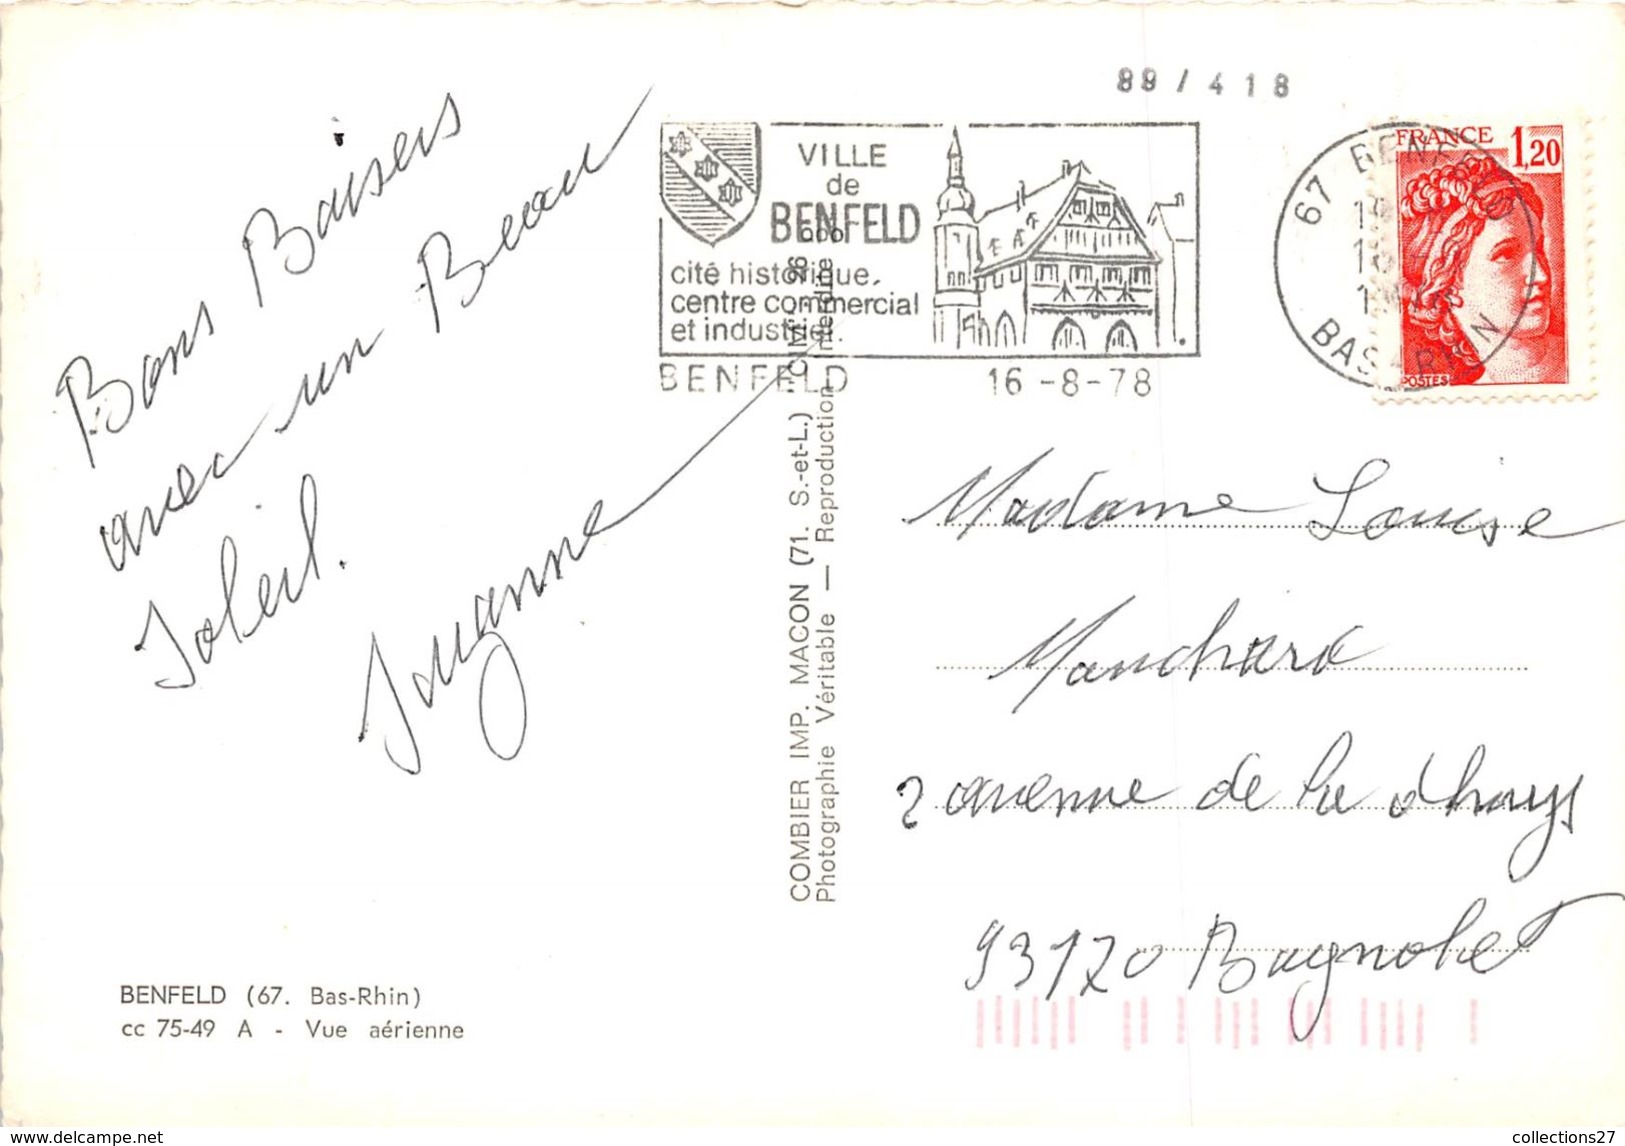 89 / 418
Bons Baisers
avec un Beau
Soleil.
Suzanne
VILLE
de
BENFELD
cité historique,
centre commercial
et industriel.
BENFELD 16-8-78
67 BENFELD
BAS RHIN
FRANCE 1,20
POSTES
COMBIER IMP. MACON (71. S.-et-L.) "CIM"
Photographie Véritable — Reproduction interdite
Madame Louise
Manchard
2 avenue de la dhuys
93170 Bagnolet
BENFELD (67. Bas-Rhin)
cc 75-49 A - Vue aérienne
collections27